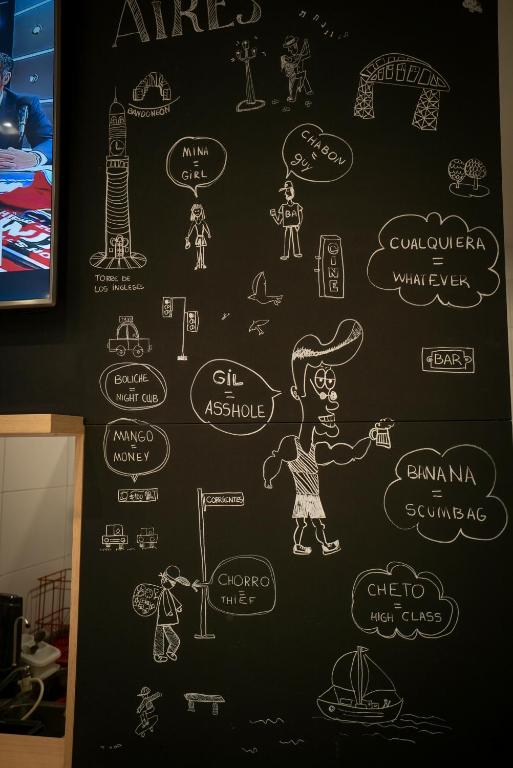 AIRES
BANDONEON
MINA
=
GIRL
CHABON
=
guy
BA
TORRE DE
LOS INGLESES
CINE
CUALQUIERA
=
WHATEVER
BAR
BOLICHE
=
NIGHT CLUB
GIL
=
ASSHOLE
MANGO
=
MONEY
$100
BANANA
=
SCUMBAG
CORRIENTES
CHORRO
=
THIEF
CHETO
=
HIGH CLASS